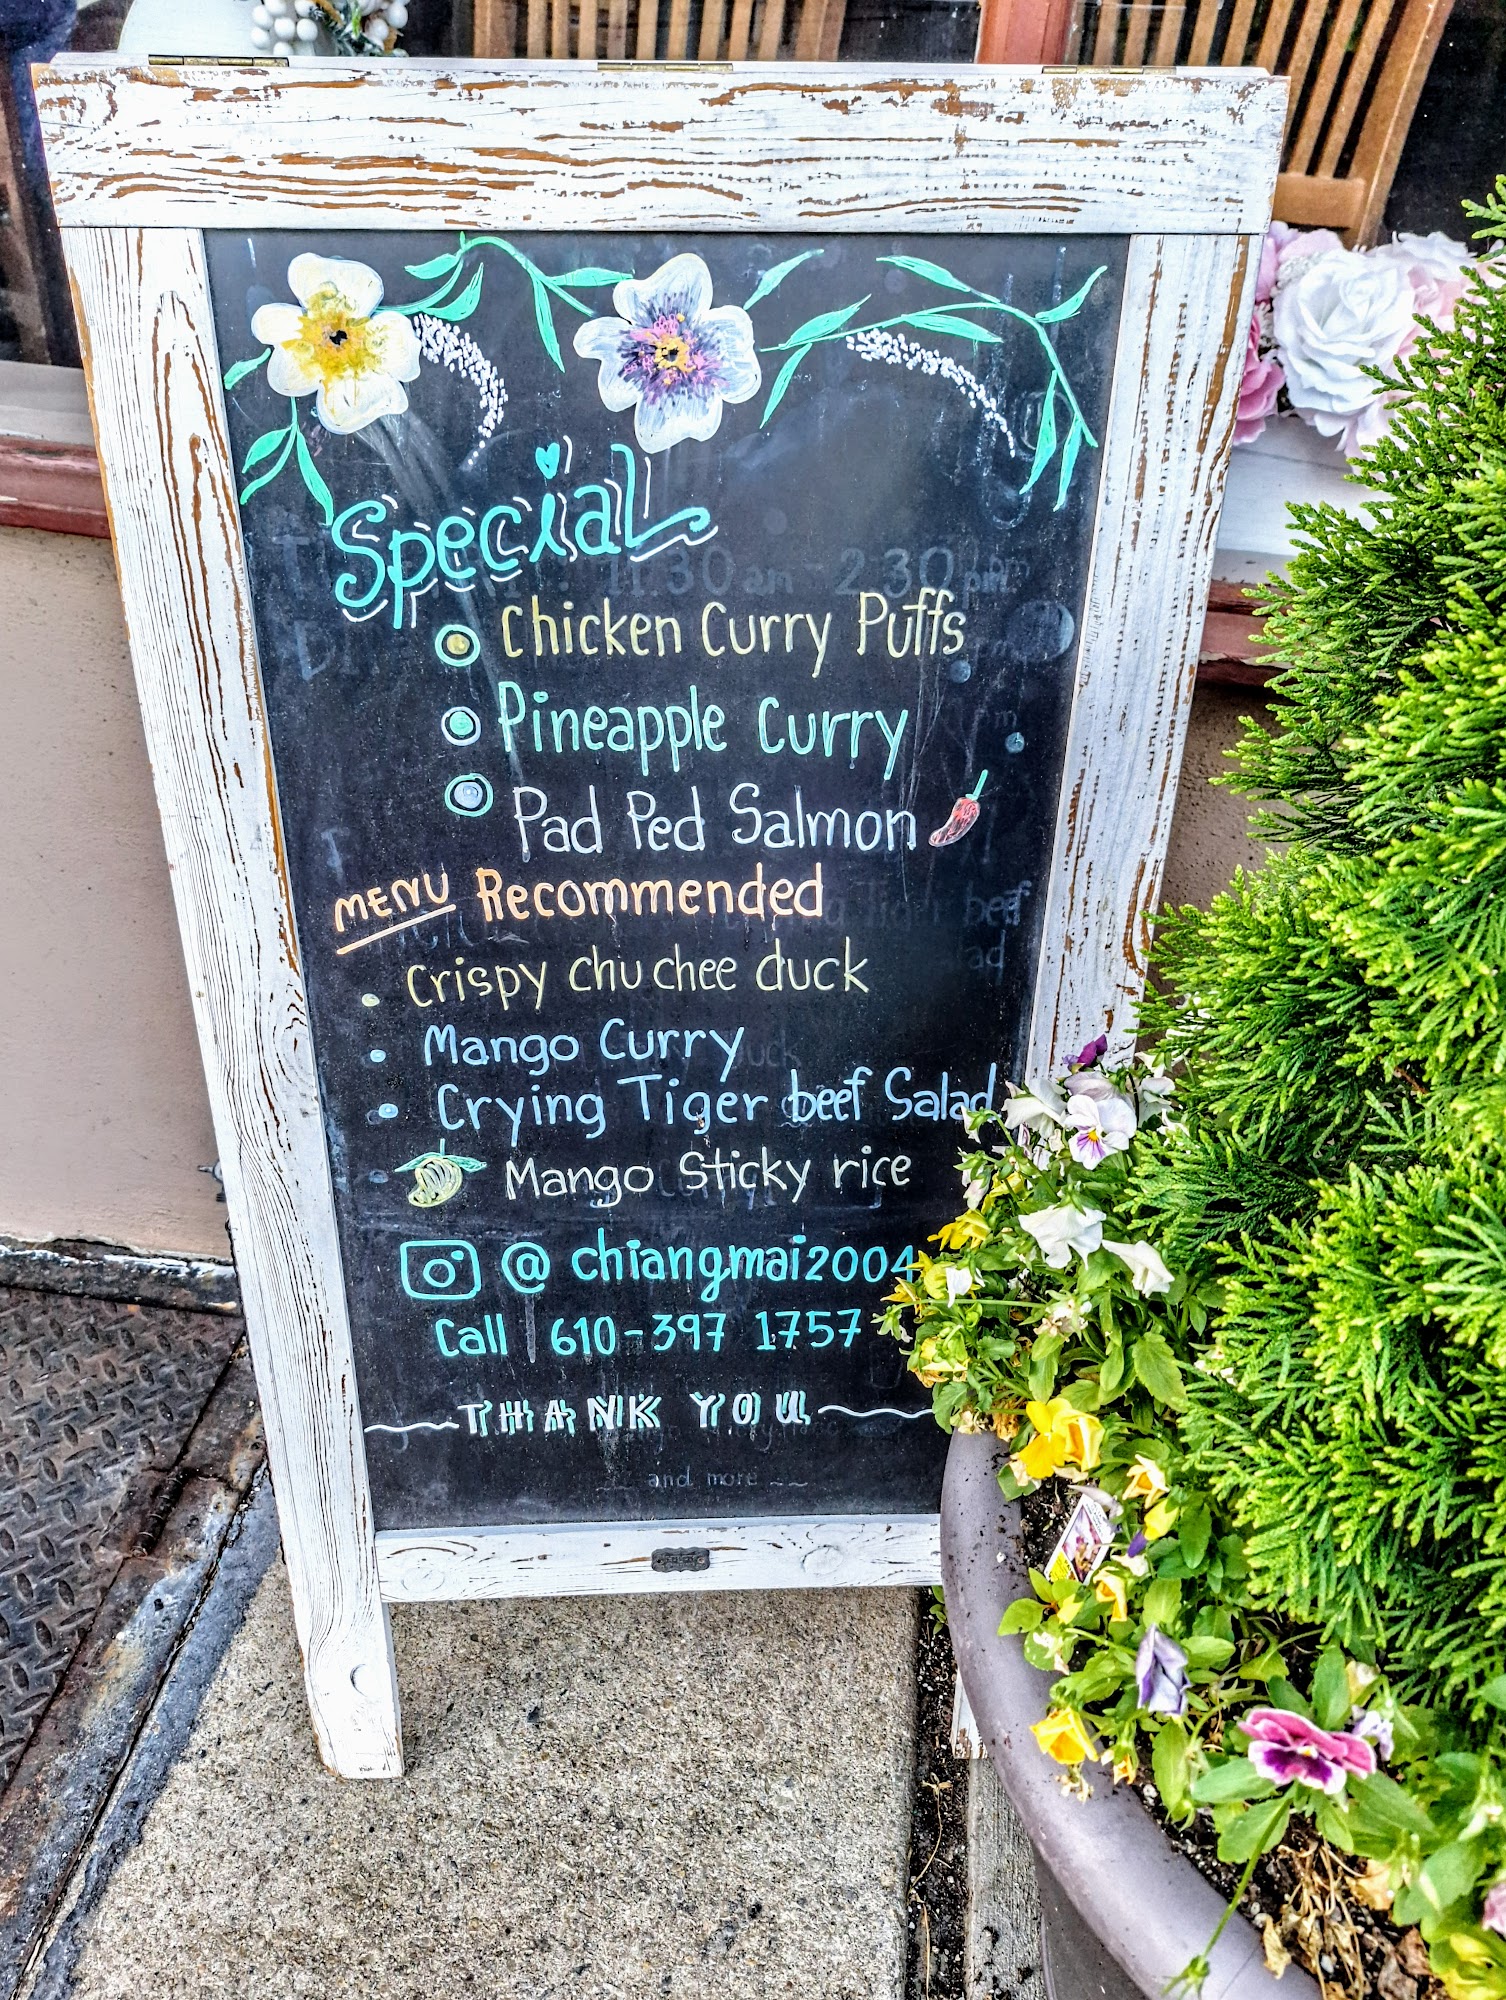 Special
11.30 am - 2:30 pm
Chicken Curry Puffs
Pineapple Curry
Pad Ped Salmon
MENU Recommended
Crispy chu chee duck
Mango Curry
Crying Tiger beef Salad
Mango Sticky rice
@ chiangmai2004
Call 610-397 1757
THANK YOU
and more